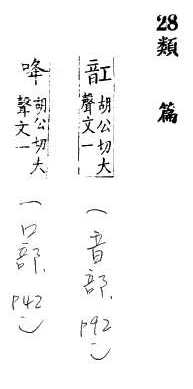 28類 篇
䪦
胡公切大
聲文一
(音部. P92)
胡公切大
聲文一
(口部. P42)